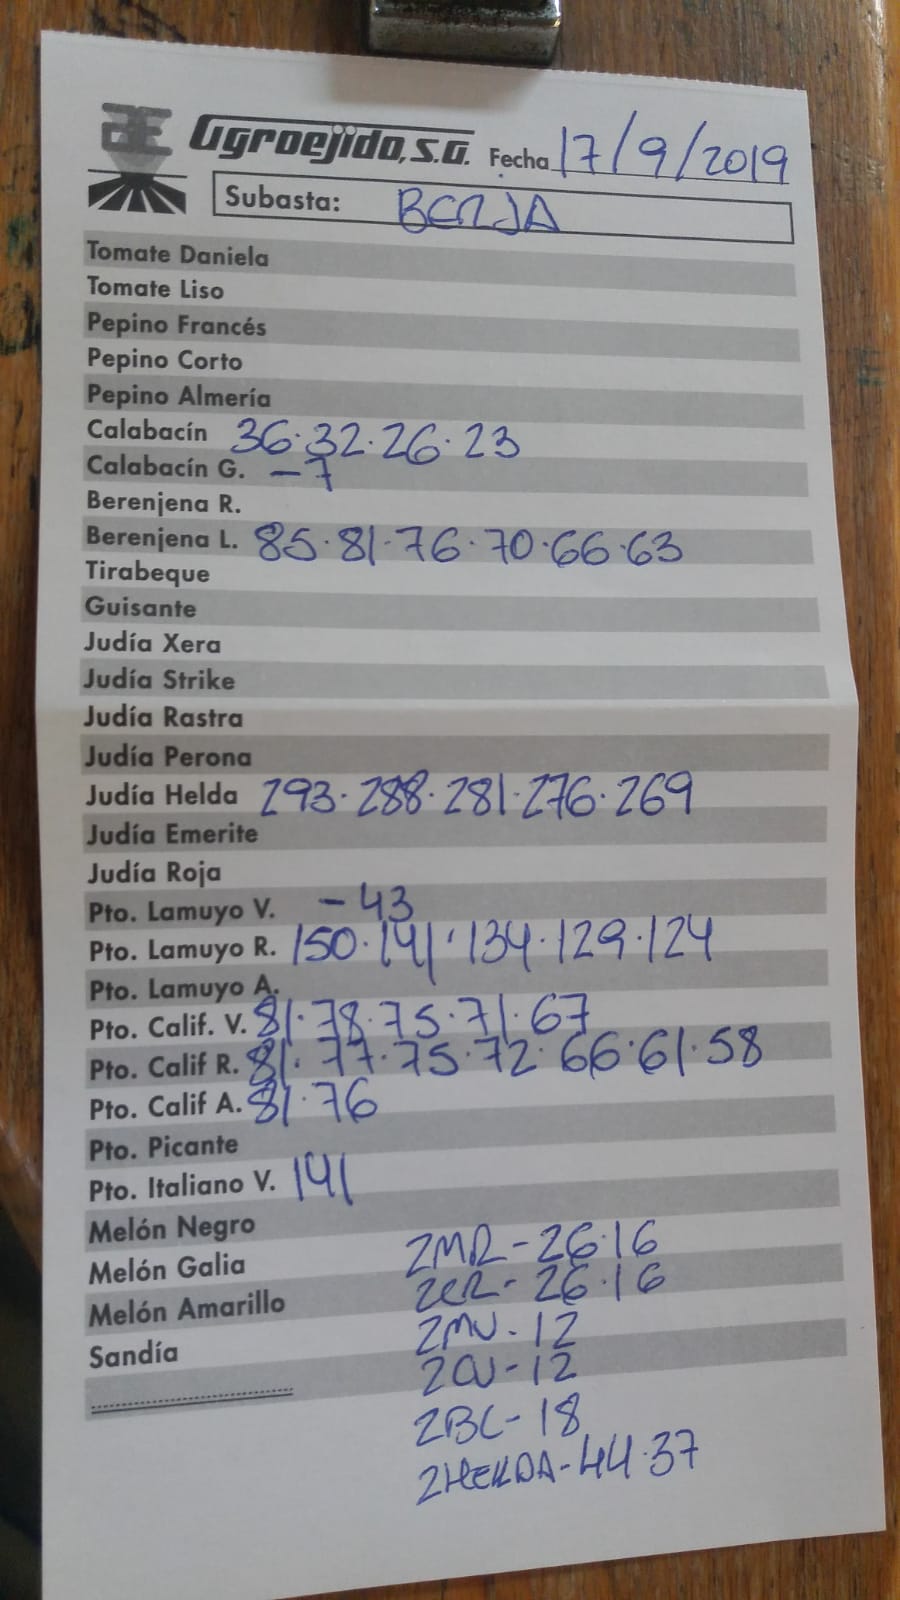 Agroejido, S.A. Fecha 17/9/2019
Subasta: BERJA
Tomate Daniela
Tomate Liso
Pepino Francés
Pepino Corto
Pepino Almería
Calabacín 36·32·26·23
Calabacín G. -7
Berenjena R.
Berenjena L. 85·81·76·70·66·63
Tirabeque
Guisante
Judía Xera
Judía Strike
Judía Rastra
Judía Perona
Judía Helda 293·288·281·276·269
Judía Emerite
Judía Roja
Pto. Lamuyo V. -43
Pto. Lamuyo R. 150·141·134·129·124
Pto. Lamuyo A.
Pto. Calif. V. 81·78·75·71·67
Pto. Calif R. 81·77·75·72·66·61·58
Pto. Calif A. 81·76
Pto. Picante
Pto. Italiano V. 141
Melón Negro
Melón Galia 2MR-26·16
Melón Amarillo 2CR-26·16
2MV-12
Sandía 2CV-12
2BC-18
2HELDA-44·37